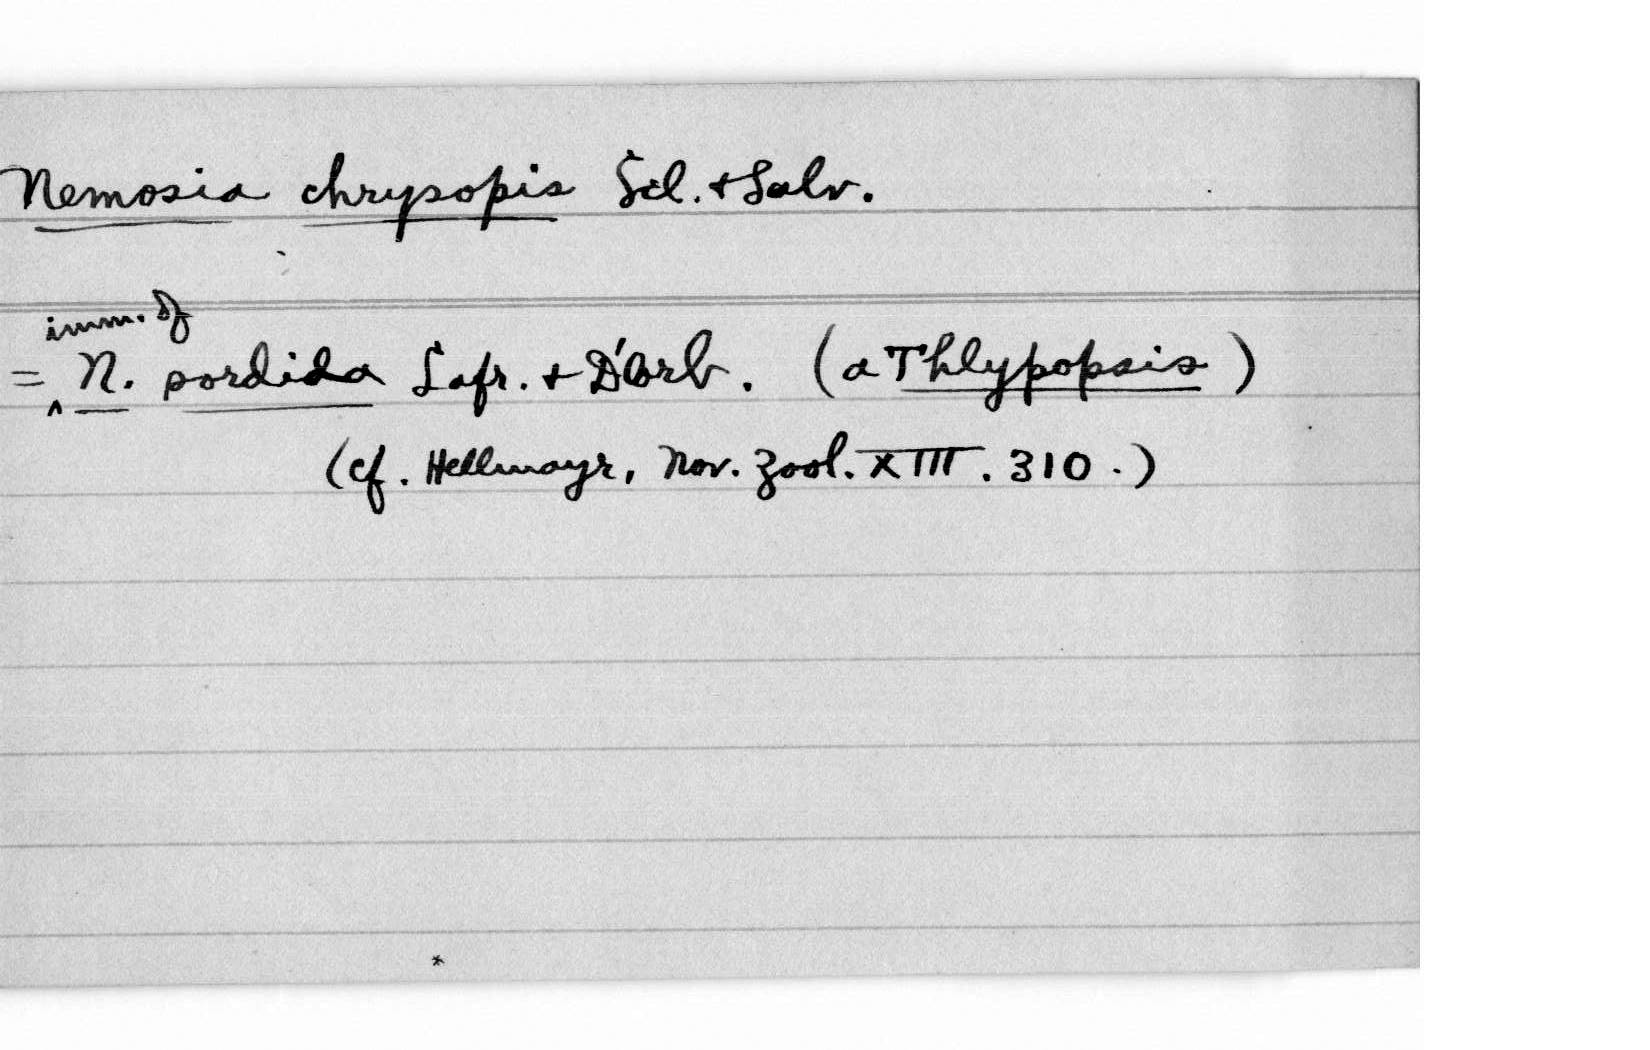 Nemosia chrysopis Scl. + Salv.
imm. of
= N. sordida Lafr. + D'Orb. (a Thlypopsis)
(cf. Hellmayr, Nov. Zool. XIII. 310.)
*